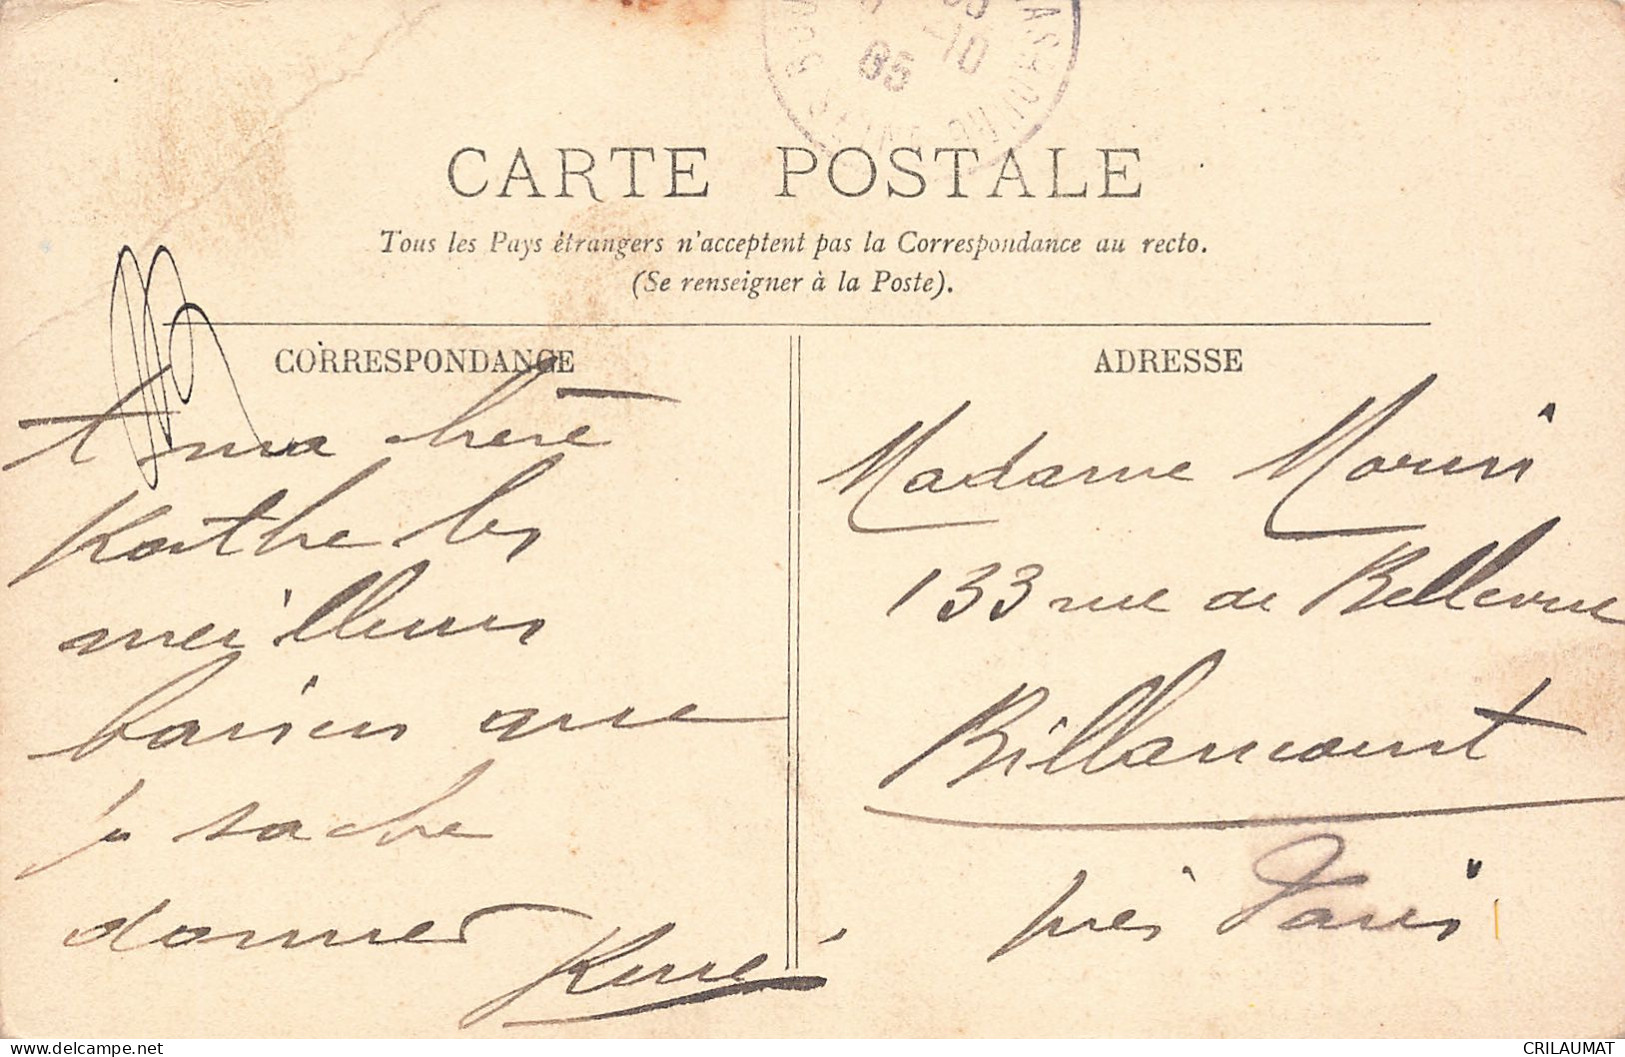 05
-10
CARTE POSTALE
Tous les Pays étrangers n'acceptent pas la Correspondance au recto.
(Se renseigner à la Poste).
CORRESPONDANCE
A ma chère
Kathe les
meilleurs
baisers que
je sache
donner
René
ADRESSE
Madame Morin
133 rue de Bellevue
Billancourt
près Paris
CRILAUMAT